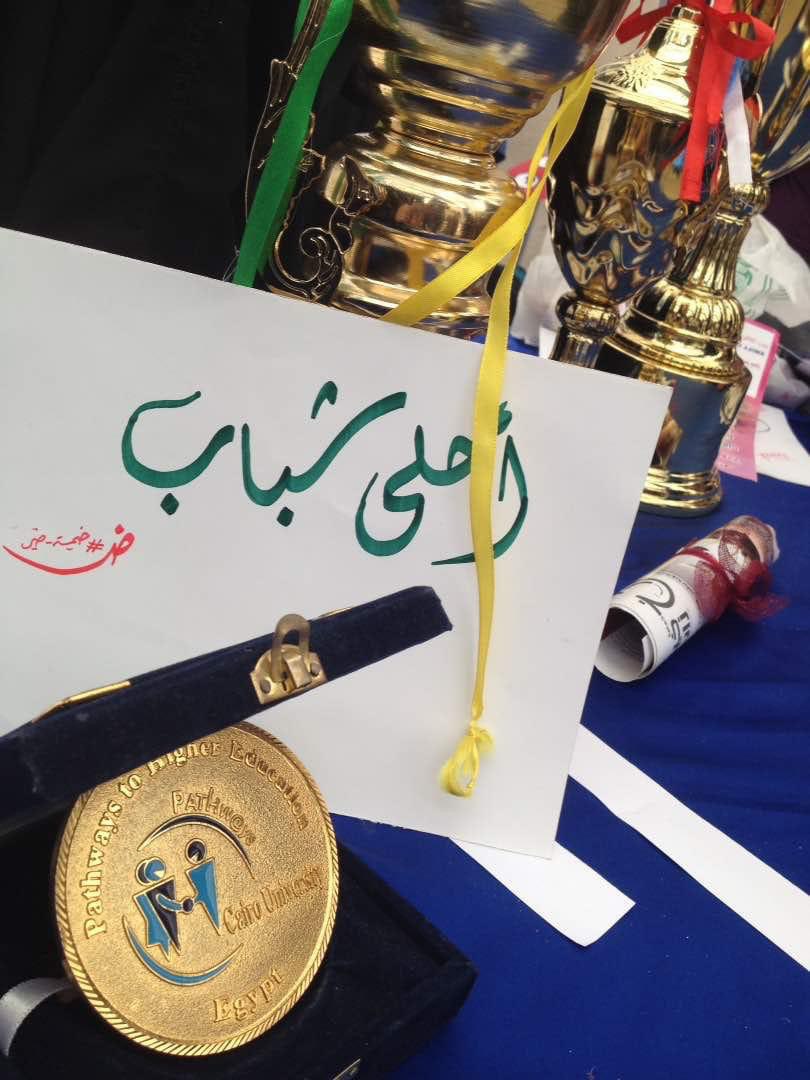 أحلى شباب
ض
Pathways to Higher Education
PAThways
Cairo University
Egypt